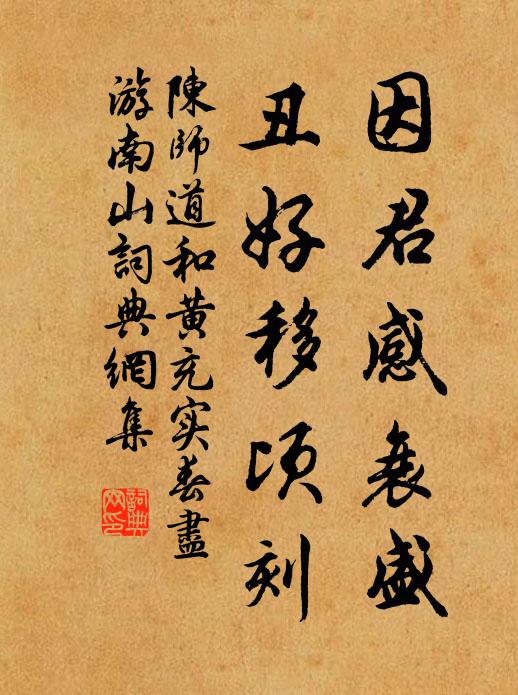 因君感衰盛
丑好移顷刻
陳師道和黄充实春盡
游南山詞典網集
詞典
网印